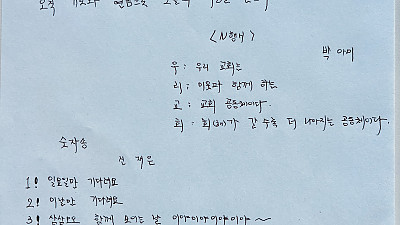 <N행시>
박 아미
우: 우리 교회는
리: 이웃과 함께 하는
교: 교회 공동체이다.
회: 회(해)가 갈 수록 더 나아지는 공동체이다.
숫자송
신 객은
1! 일요일만 기다려요
2! 이날만 기다려요
3! 삼삼오오 함께 모이는 날 이야이야이야이야~